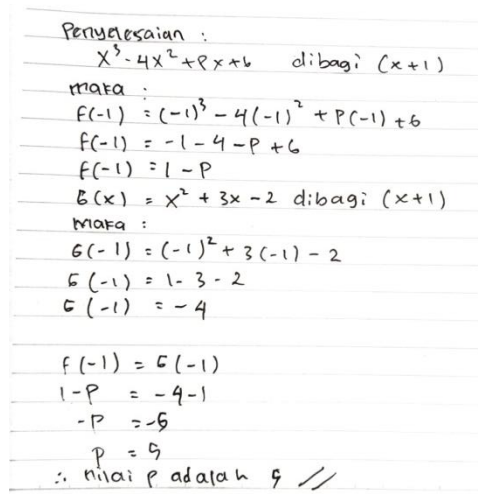 Penyelesaian :
x³ - 4x² + Px + 6 dibagi (x+1)
maka :
f(-1) = (-1)³ - 4(-1)² + P(-1) + 6
f(-1) = -1 - 4 - P + 6
f(-1) = 1 - P
G(x) = x² + 3x - 2 dibagi (x+1)
maka :
G(-1) = (-1)² + 3(-1) - 2
G(-1) = 1 - 3 - 2
G(-1) = - 4
f(-1) = G(-1)
1 - P = - 4 - 1
- P = -5
P = 5
∴ nilai p adalah 5 //